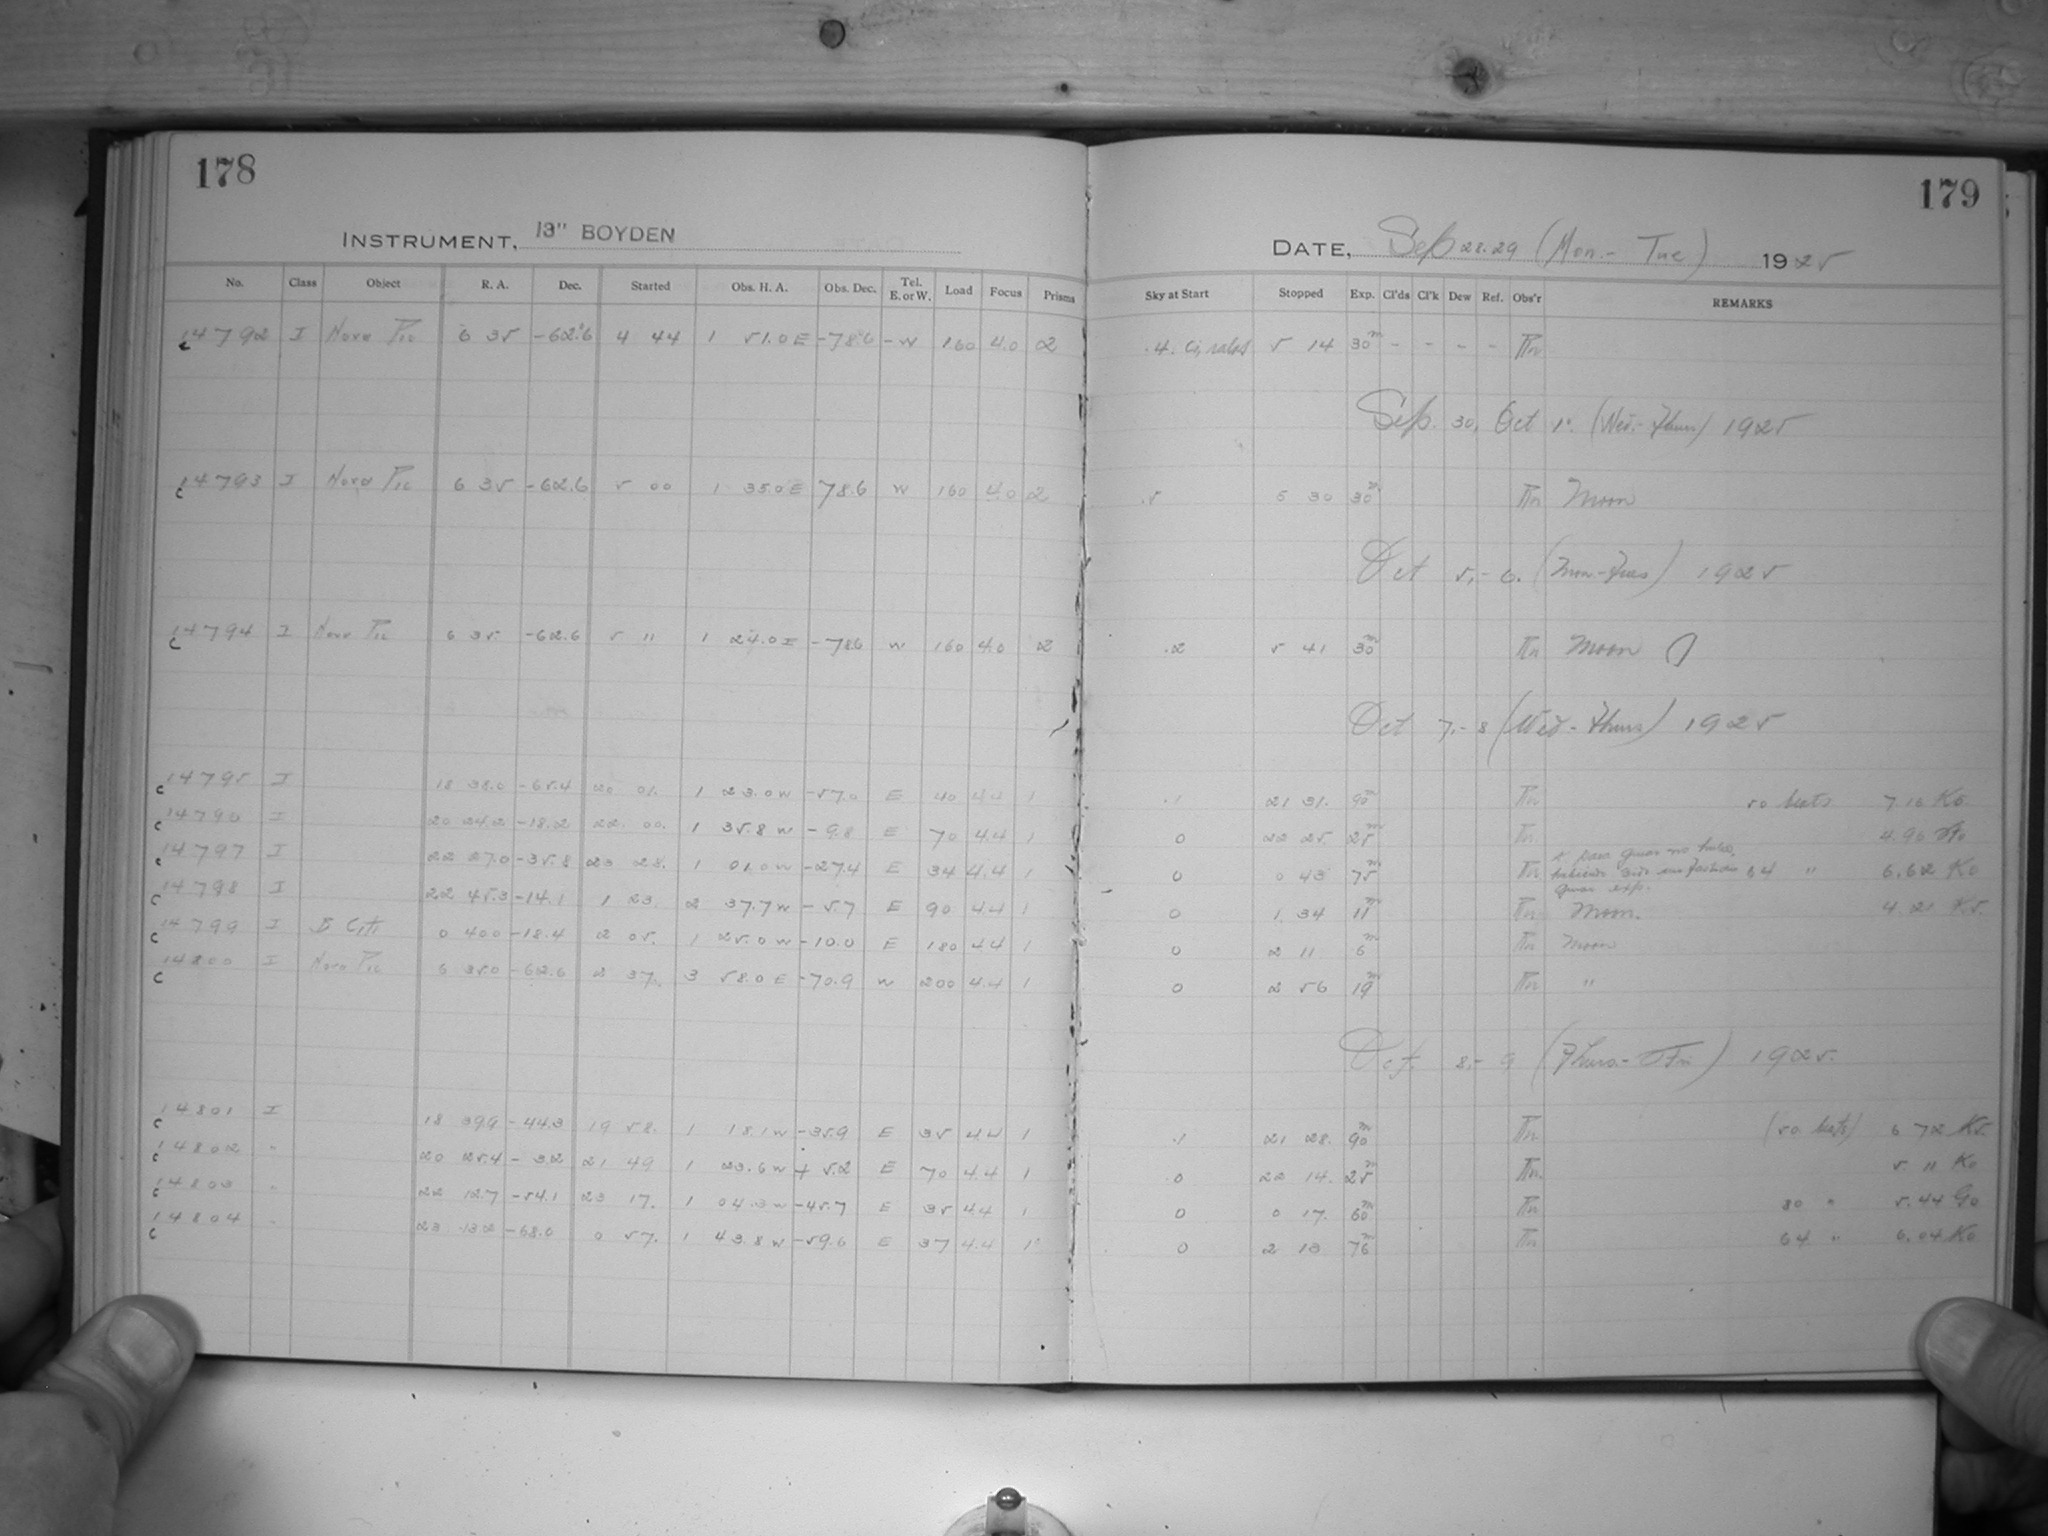 178
179
INSTRUMENT, 13" BOYDEN
DATE, Sep 28.29 (Mon.- Tue) 1925
No. Class Object R. A. Dec. Started Obs. H. A. Obs. Dec. Tel. E. or W. Load Focus Prisms Sky at Start Stopped Exp. Cl'ds Cl'k Dew Ref. Obs'r REMARKS
c14792 I Nova Pic 6 35 -62.6 4 44 1 51.0 E -78.6 -W 160 4.0 2 .4. Ci, 5 14 30m - - - -
Sep. 30, Oct 1. (Wed.- Thurs) 1925
c14793 I Nova Pic 6 35 -62.6 5 00 1 35.0 E 78.6 W 160 4.0 2 .5 5 30 30m Moon
Oct 5,- 6. (Mon-Tues) 1925
c14794 I Nova Pic 6 35. -62.6 5 11 1 24.0 E -78.6 W 160 4.0 2 .2 5 41 30m Moon
Oct 7.- 8 (Wed - Thurs) 1925
c14795 I 18 38.0 -65.4 20 01. 1 23.0 W -57.0 E 40 4.4 1 .1 21 31. 90m 50 beats 7.16 K0
c14796 I 20 24.2 -18.2 22. 00. 1 35.8 W - 9.8 E 70 4.4 1 0 22 25. 25m 4.96
c14797 I 22 27.0 -35.8 23 28. 1 01.0 W -27.4 E 34 4.4 1 0 0 43 75m 64 " 6.62 K0
c14798 I 22 45.3 -14.1 1 23. 2 37.7 W - 5.7 E 90 4.4 1 0 1. 34 11m Moon. 4.21 K5.
c14799 I B Ceti 0 40.0 -18.4 2 05. 1 25.0 W -10.0 E 180 4.4 1 0 2 11 6m Moon
c14800 I Nova Pic 6 35.0 -62.6 2 37. 3 58.0 E -70.9 W 200 4.4 1 0 2 56 19m "
Oct. 8.- 9 (Thurs.- Fri) 1925.
c14801 I 18 39.9 -44.3 19 58. 1 18.1 W -35.9 E 35 4.4 1 .1 21 28. 90m (50 beats) 6 72 K5.
c14802 " 20 25.4 - 3.2 21 49 1 23.6 W + 5.2 E 70 4.4 1 0 22 14. 25m 5. 11 K0
c14803 " 22 12.7 -54.1 23 17. 1 04.3 W -45.7 E 35 4.4 1 0 0 17. 60m 80 " 5.44 G0
c14804 " 23 13.2 -68.0 0 57. 1 43.8 W -59.6 E 37 4.4 1 0 2 13 76m 64 " 6.04 K0